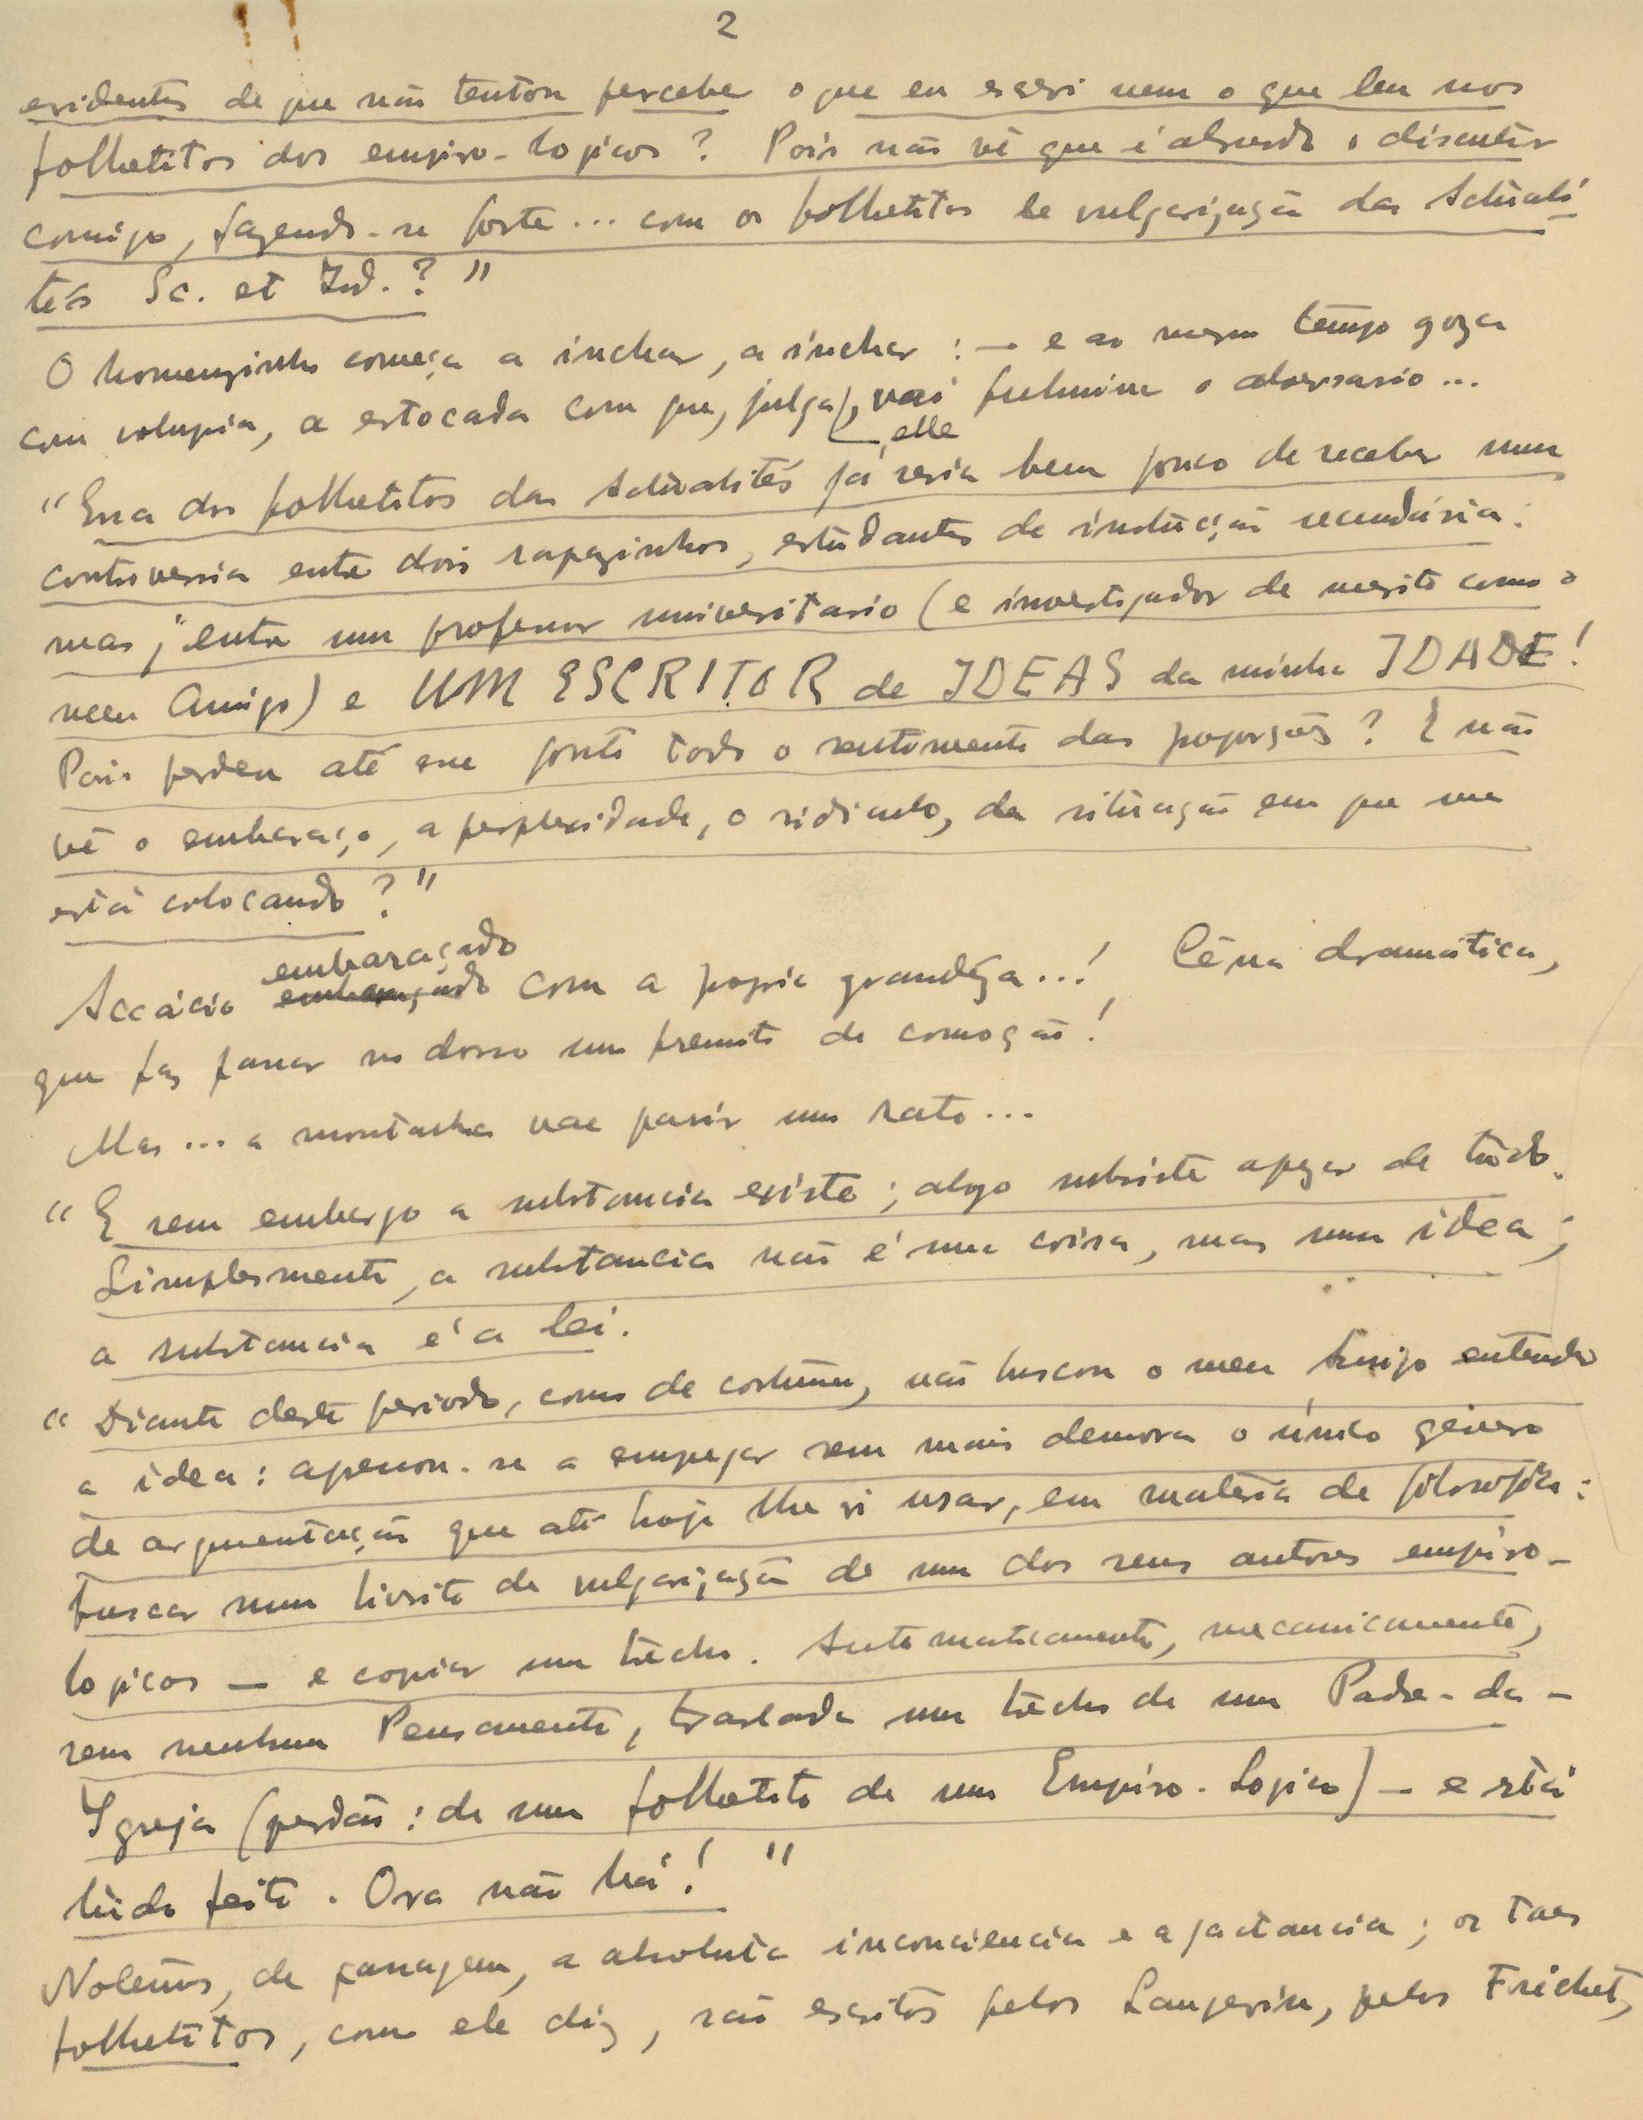 2
evidentes de que não tentou perceber o que eu escrevi nem o que leu nos
folhetitos dos empiro-logicos? Pois não vê que é absurdo o discutir
comigo, fazendo-se forte... com os folhetitos de vulgarização das Actuali-
tés Sc. et Ind.?"
O homenzinho começa a inchar, a inchar: — e ao mesmo tempo goza
com volupia, a estocada com que, julga, vai fulminar o adversario...
elle
"Essa dos folhetitos das Actualités já seria bem pouco de receber numa
controversia entre dois rapazinhos, estudantes de instrução secundária:
mas, entre um professor universitario (e investigador de merito como o
meu Amigo) e UM ESCRITOR de IDEAS da minha IDADE!
Pois perdeu até esse ponto todo o sentimento das proporções? E não
vê o embaraço, a perplexidade, o ridiculo, da situação em que me
está colocando?"
embaraçado
Accácio embaraçado com a propria grandêza...! Cêna dramática,
que faz passar no dorso um fremito de comoção!
Mas... a montanha vae parir um rato...
"E sem embargo a substancia existe; algo subsiste apezar de tudo.
Simplesmente, a substancia não é uma coisa, mas uma idea;
a substancia é a lei.
"Diante deste periodo, como de costume, não buscou o meu Amigo entender
a idea: apressou-se a empregar sem mais demora o único género
de argumentação que até hoje lhe vi usar, em materia de filosofia:
buscar num livrito de vulgarização de um dos seus autores empiro-
logicos — e copiar um trecho. Automaticamente, mecanicamente,
sem nenhum Pensamento, traslada um trecho de um Padre-da-
Igreja (perdão: de um folhetito de um Empiro-Logico) — e está
tudo feito. Ora não há!"
Notemos, de passagem, a absoluta inconciencia e a jactancia; os taes
folhetitos, como ele diz, são escritos pelos Langevin, pelos Fréchet,